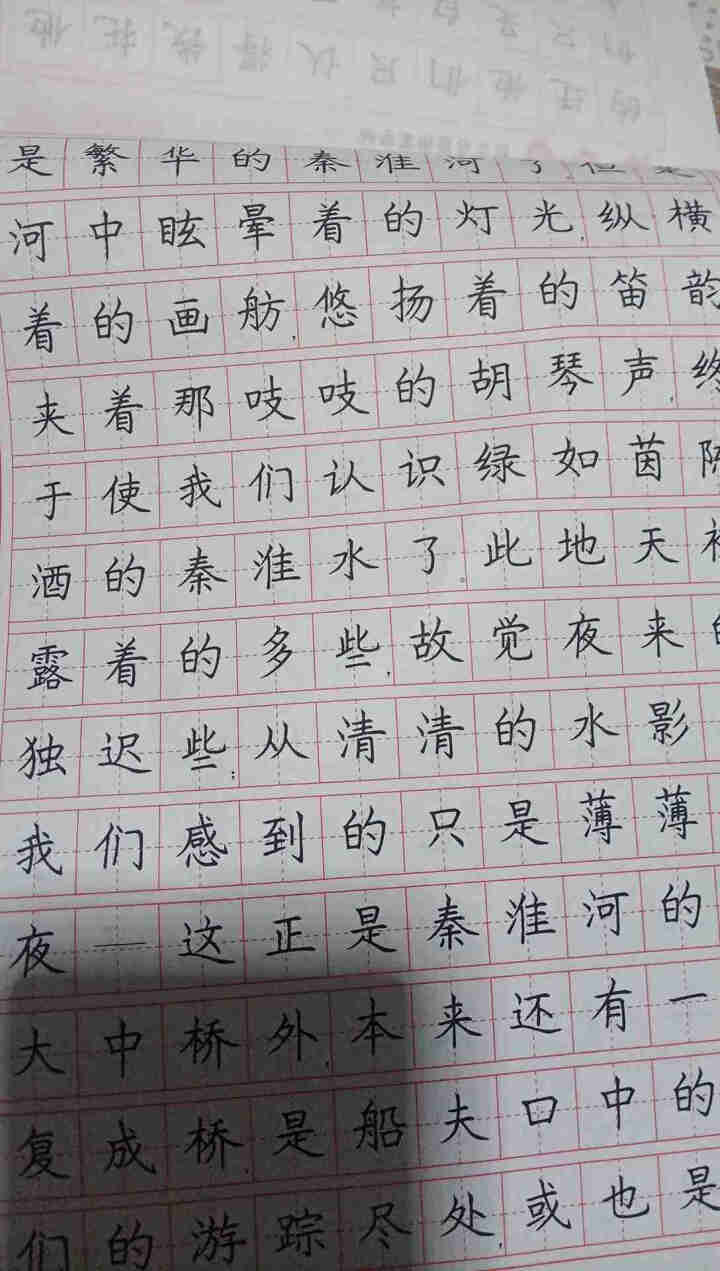 是繁华的秦淮河了
河中眩晕着的灯光,纵横
着的画舫,悠扬着的笛韵
夹着那吱吱的胡琴声,终
于使我们认识绿如茵陈
酒的秦淮水了。此地天
露着的多些,故觉夜来
独迟些;从清清的水影
我们感到的只是薄薄
夜——这正是秦淮河的
大中桥外,本来还有一
复成桥,是船夫口中的
们的游踪尽处,或也是